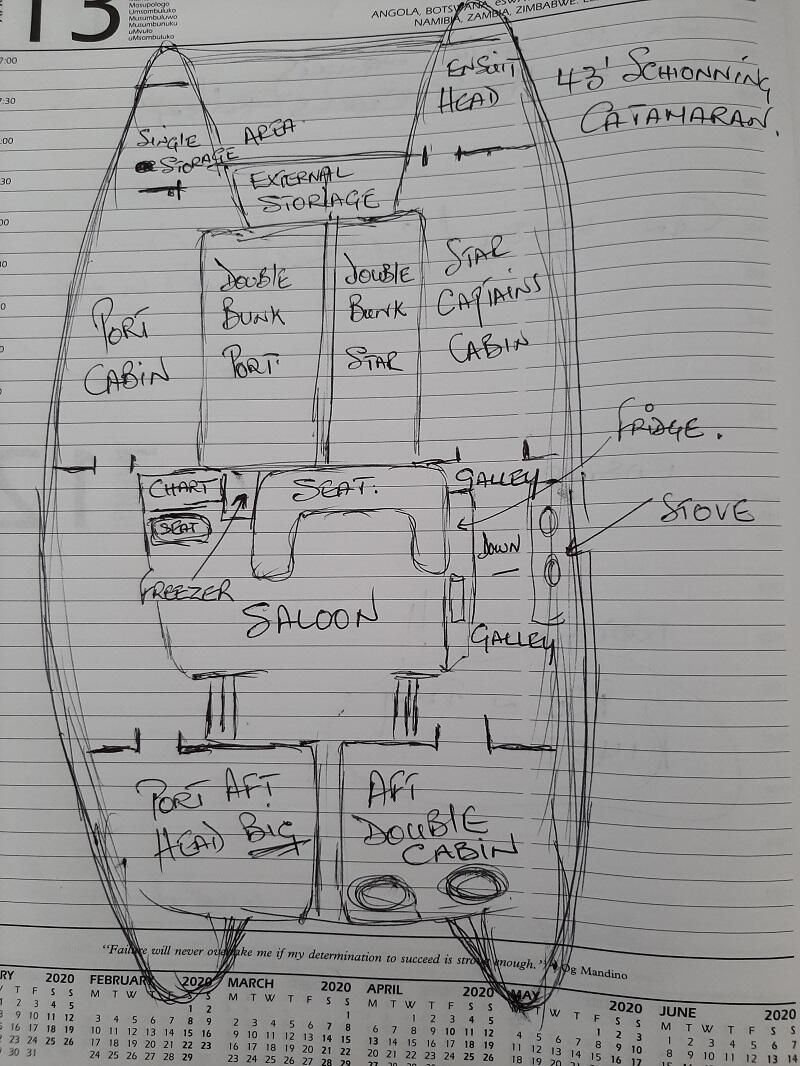 13
Musombuluko
Masupologo
Umsombuluko
Musumbuluwo
Musumbunuku
uMvulo
uMsombuluko
NAMIBIA, ZAMBIA, ZIMBABWE,
7:00
7:30
:00
:30
ENSUIT
HEAD
43' SCHIONNING
CATAMARAN.
SINGLE
STORAGE
AREA
EXTERNAL
STORAGE
PORT
CABIN
DOUBLE
BUNK
PORT.
DOUBLE
BUNK
STAR
STAR
CAPTAINS
CABIN
FRIDGE.
CHART
SEAT
SEAT.
GALLEY
STOVE
DOWN
FREEZER
SALOON
GALLEY
PORT AFT
HEAD BIG
AFT
DOUBLE
CABIN
"Failure will never overtake me if my determination to succeed is strong enough." Og Mandino
RY 2020
T F S S
2 3 4 5
9 10 11 12
16 17 18 19
23 24 25 26
30 31
FEBRUARY 2020
M T W T F S S
1 2
3 4 5 6 7 8 9
10 11 12 13 14 15 16
17 18 19 20 21 22 23
24 25 26 27 28 29
MARCH 2020
M T W T F S S
1
2 3 4 5 6 7 8
9 10 11 12 13 14 15
16 17 18 19 20 21 22
23 24 25 26 27 28 29
APRIL 2020
M T W T F S S
1 2 3 4 5
6 7 8 9 10 11 12
13 14 15 16 17 18 19
20 21 22 23 24 25 26
27 28 29 30
MAY 2020
M T W T F S S
1 2 3
4 5 6 7 8 9 10
11 12 13 14 15 16 17
18 19 20 21 22 23 24
JUNE 2020
M T W T F S S
1 2 3 4 5 6 7
8 9 10 11 12 13 14